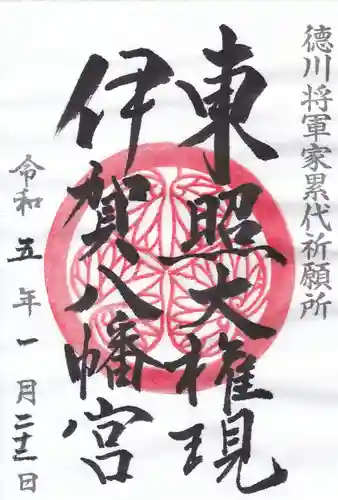 徳川将軍家累代祈願所
東照大権現
伊賀八幡宮
令和五年一月二十三日